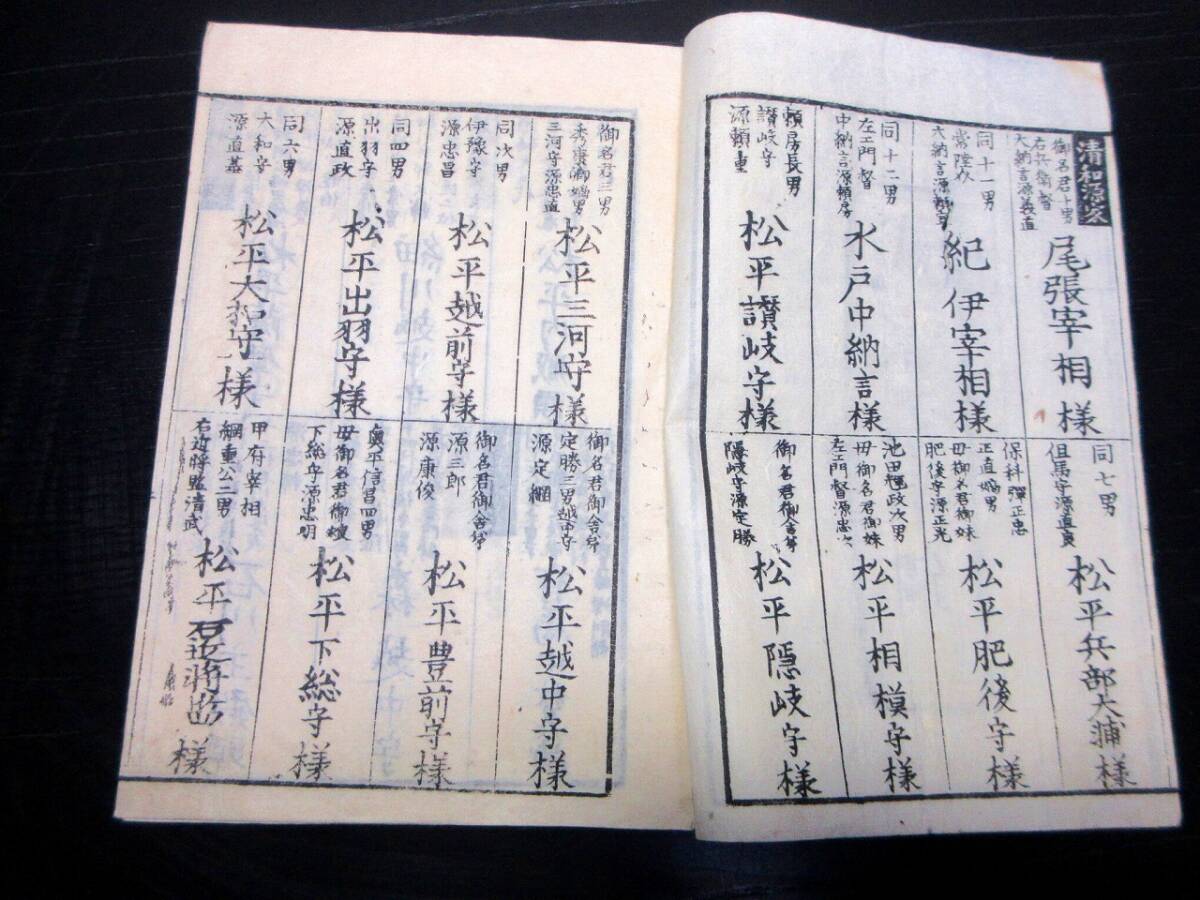 清和源氏
御名君十男
右兵衛督
大納言源義直
尾張宰相様
同十一男
常陸介
大納言源頼宣
紀伊宰相様
同十二男
左エ門督
中納言源頼房
水戸中納言様
頼房長男
讃岐守
源頼重
松平讃岐守様
同七男
但馬守源直良
松平兵部大浦様
保科弾正忠
正直嫡男
毋御名君御妹
肥後守源正光
松平肥後守様
池田輝政次男
毋御名君御妹
左エ門督源忠次
松平相模守様
御名君御舎弟
隠岐守源定勝
松平隠岐守様
御名君三男
秀康卿嫡男
三河守源忠直
松平三河守様
同次男
伊豫守
源忠昌
松平越前守様
同四男
出羽守
源直政
松平出羽守様
同六男
大和守
源直基
松平大和守様
御名君御舎弟
定勝三男越中守
源定綱
松平越中守様
御名君御舎弟
源三郎
源康俊
松平豊前守様
奥平信昌四男
毋御名君御嬢
下総守源忠明
松平下総守様
甲府宰相
綱重公二男
右近将監清武
松平右近将監様